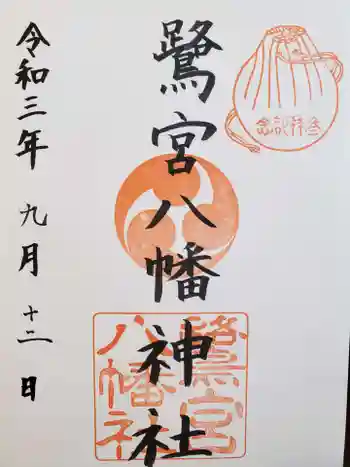 参拝記念
鷺宮八幡神社
鷺宮
八幡神社
令和三年 九月 十二日